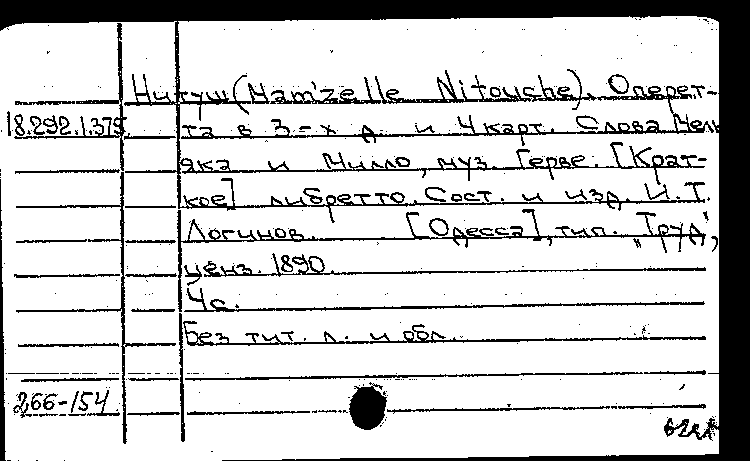 Нитуш (Mam'zelle Nitouche). Оперет-
18.292.1.379
та в 3-х д. и 4 карт. Слова Мель
яка и Милло, муз. Герве. [Крат-
кое] либретто. Сост. и изд. И.Т.
Логинов. [Одесса], тип. "Труд",
ценз. 1890.
4 с.
Без тит. л. и обл.
266-154